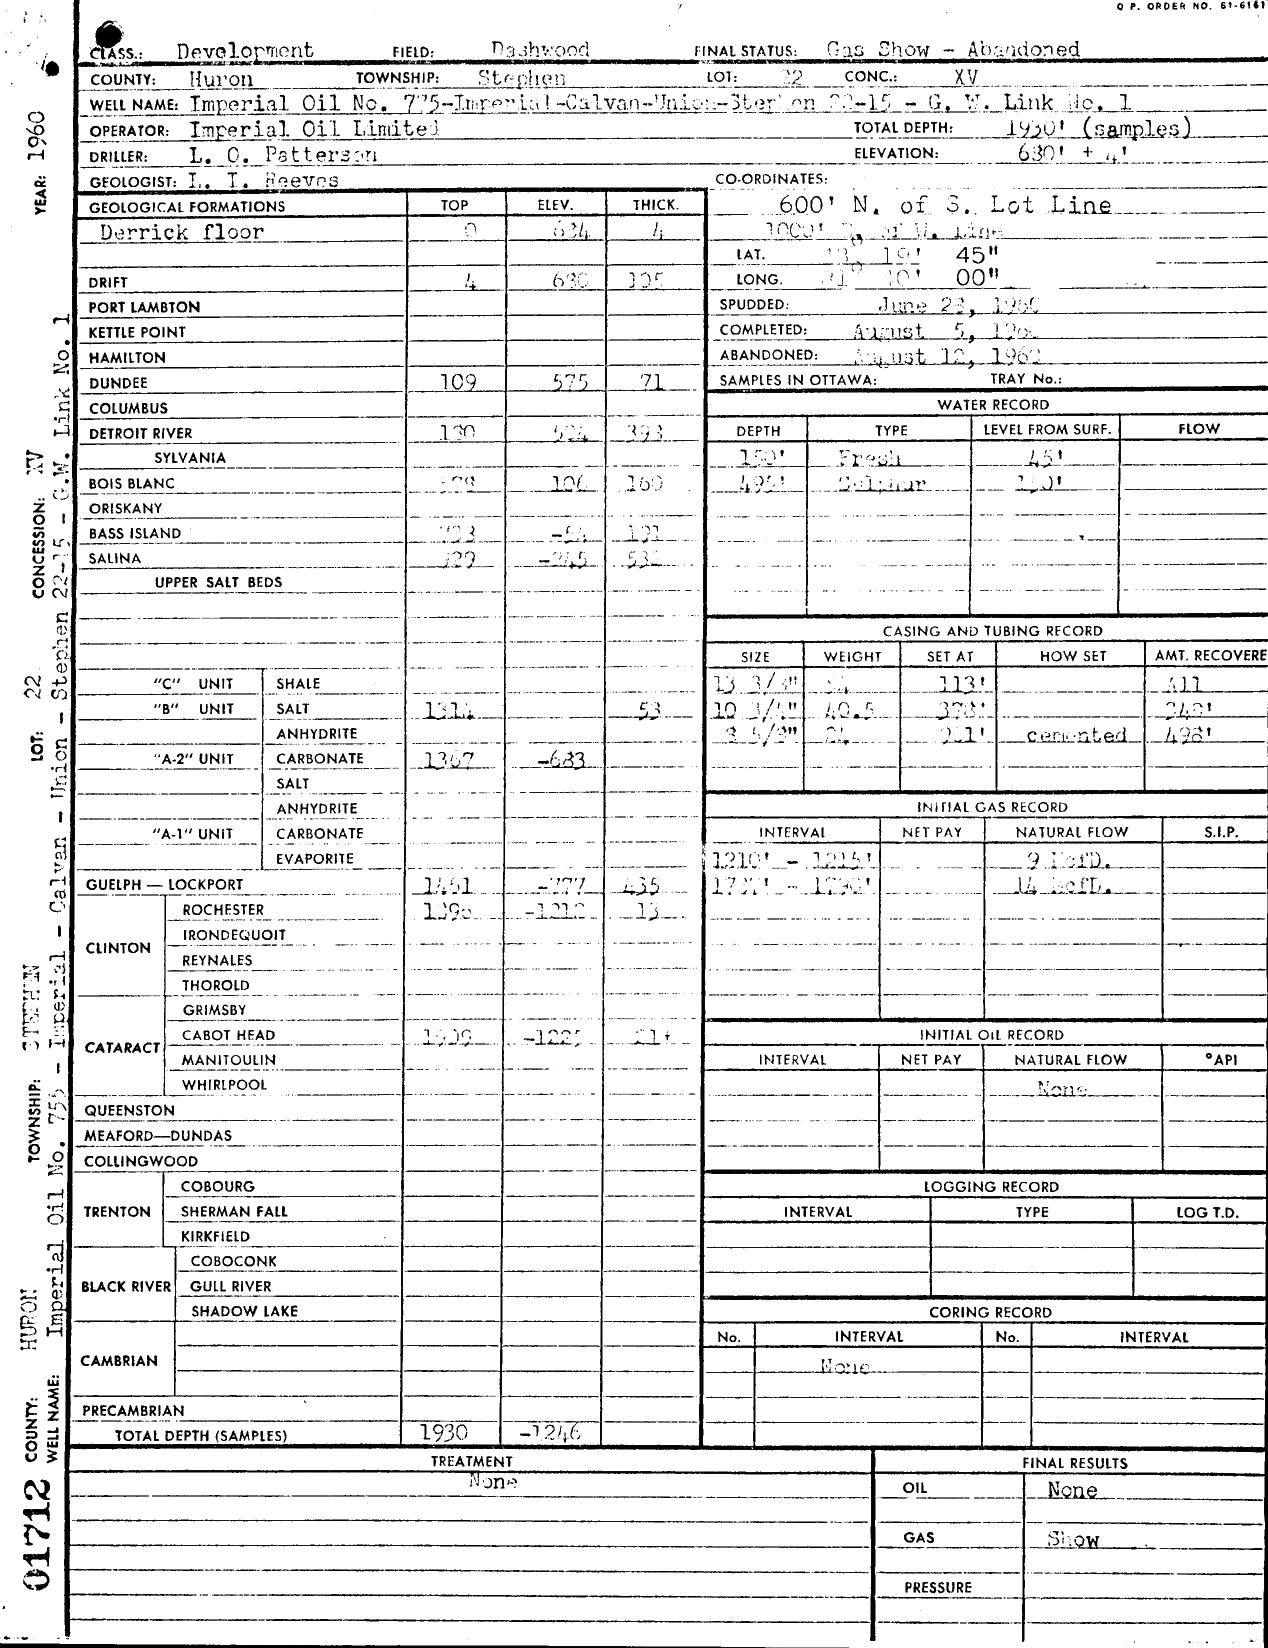 O P. ORDER NO. 61-6161
CLASS.: Development FIELD: Dashwood FINAL STATUS: Gas Show - Abandoned
COUNTY: Huron TOWNSHIP: Stephen LOT: 22 CONC.: XV
WELL NAME: Imperial Oil No. 775-Imperial-Calvan-Union-Stephen 22-15 - G. W. Link No. 1
OPERATOR: Imperial Oil Limited TOTAL DEPTH: 1930' (samples)
DRILLER: L. O. Patterson ELEVATION: 680' + 4'
GEOLOGIST: L. I. Reeves CO-ORDINATES:
GEOLOGICAL FORMATIONS TOP ELEV. THICK. 600' N. of S. Lot Line
Derrick floor 0 684 4 1000' of W. Line
LAT. 19' 45"
DRIFT 4 680 105 LONG. 00"
PORT LAMBTON SPUDDED: June 23, 1960
KETTLE POINT COMPLETED: August 5, 1960
HAMILTON ABANDONED: August 12, 1960
DUNDEE 109 575 71 SAMPLES IN OTTAWA: TRAY No.:
COLUMBUS WATER RECORD
DETROIT RIVER 180 504 398 DEPTH TYPE LEVEL FROM SURF. FLOW
SYLVANIA 150' Fresh 45'
BOIS BLANC 578 106 160 495' Sulphur 150'
ORISKANY
BASS ISLAND 738 -54 191
SALINA 929 -245 532
UPPER SALT BEDS
CASING AND TUBING RECORD
SIZE WEIGHT SET AT HOW SET AMT. RECOVERE
"C" UNIT SHALE 13 3/8" 113' All
"B" UNIT SALT 1314 53 10 3/4" 40.5 378'
ANHYDRITE 8 5/8" 24 cemented 498'
"A-2" UNIT CARBONATE 1367 -683
SALT
ANHYDRITE INITIAL GAS RECORD
"A-1" UNIT CARBONATE INTERVAL NET PAY NATURAL FLOW S.I.P.
EVAPORITE 1210' - 1215' 9 McfD.
GUELPH — LOCKPORT 1461 -777 435 1787' - 1790' 14 McfD.
CLINTON ROCHESTER 1896 -1212 13
IRONDEQUOIT
REYNALES
THOROLD
CATARACT GRIMSBY
CABOT HEAD 1909 -1225 21+ INITIAL OIL RECORD
MANITOULIN INTERVAL NET PAY NATURAL FLOW °API
WHIRLPOOL None
QUEENSTON
MEAFORD—DUNDAS
COLLINGWOOD
TRENTON COBOURG LOGGING RECORD
SHERMAN FALL INTERVAL TYPE LOG T.D.
KIRKFIELD
BLACK RIVER COBOCONK
GULL RIVER
SHADOW LAKE CORING RECORD
No. INTERVAL No. INTERVAL
CAMBRIAN None
PRECAMBRIAN
TOTAL DEPTH (SAMPLES) 1930 -1246
TREATMENT FINAL RESULTS
None OIL None
GAS Show
PRESSURE
COUNTY: HURON TOWNSHIP: STEPHEN LOT: 22 CONCESSION: XV YEAR: 1960
WELL NAME: Imperial Oil No. 755 - Imperial - Calvan - Union - Stephen 22-15 - G.W. Link No. 1
01712